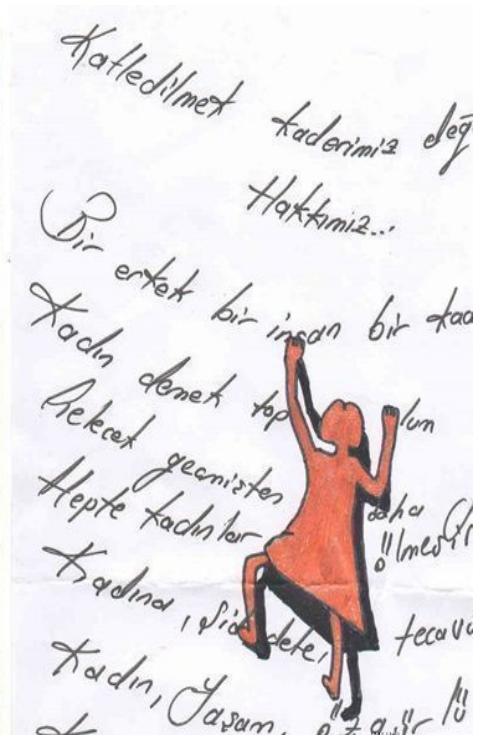 Katledilmek kaderimiz değ
Hakkımız...
Bir erkek bir insan bir kad
Kadın demek toplum
Gelecek geçmişten daha
Hepte kadınlar ölmesin
Kadına, şiddete, tecavü
Kadın, Yaşam, özgürlü